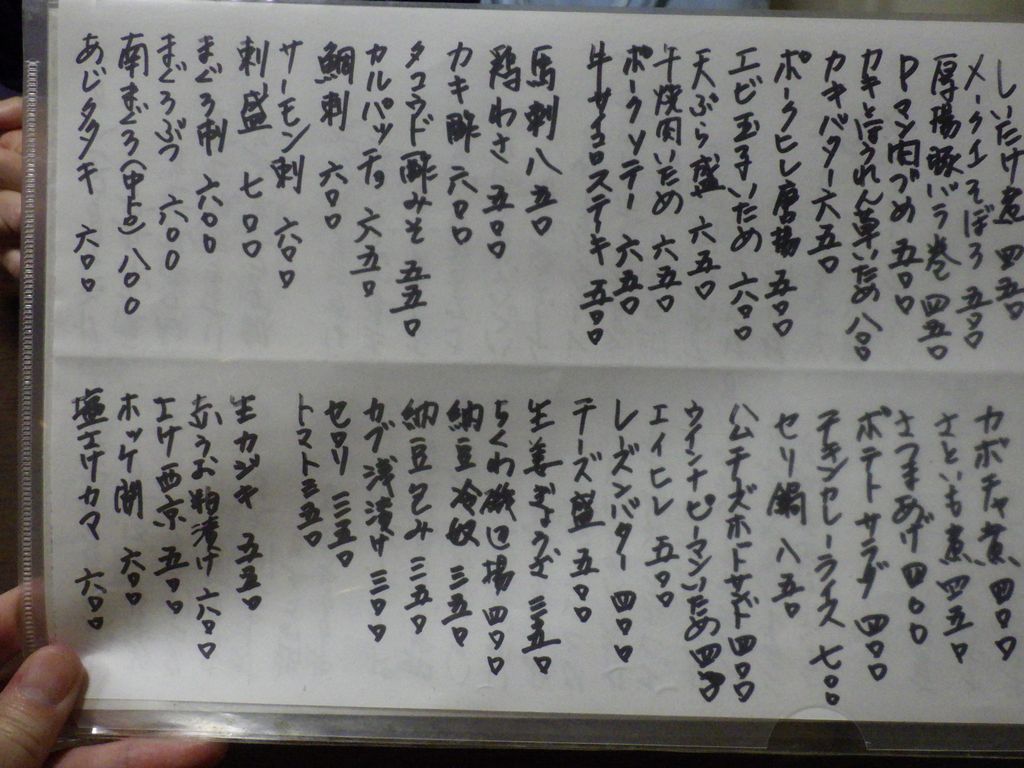 しいたけ煮 四五〇
メークインそぼろ 五〇〇
厚揚豚バラ巻 四五〇
Pマン肉づめ 五〇〇
カキとほうれん草いため 八〇〇
カキバター 六五〇
ポークヒレ唐揚 五〇〇
エビ玉子いため 六〇〇
天ぷら盛 六五〇
牛焼肉いため 六五〇
ポークソテー 六五〇
牛サイコロステーキ 五〇〇
馬刺 八五〇
鶏わさ 五〇〇
カキ酢 六〇〇
タコウド酢みそ 五五〇
カルパッチョ 六五〇
鯛刺 六〇〇
サーモン刺 六〇〇
刺盛 七〇〇
まぐろ刺 六〇〇
まぐろぶつ 六〇〇
南まぐろ(中トロ) 八〇〇
あじタタキ 六〇〇
カボチャ煮 四〇〇
さといも煮 四五〇
さつまあげ 四〇〇
ポテトサラダ 四〇〇
チキンカレーライス 七〇〇
セリ鍋 八五〇
ハムチーズホットサンド 四〇〇
ウインナピーマンいため 四〇〇
エイヒレ 五〇〇
レーズンバター 四〇〇
チーズ盛 五〇〇
生姜ぎょうざ 三五〇
ちくわ磯辺揚 四〇〇
納豆冷奴 三五〇
納豆包み 三五〇
カブ浅漬け 三〇〇
セロリ 三五〇
トマト 三五〇
生カジキ 五五〇
赤うお粕漬け 六〇〇
さけ西京 五〇〇
ホッケ開 六〇〇
塩さけカマ 六〇〇